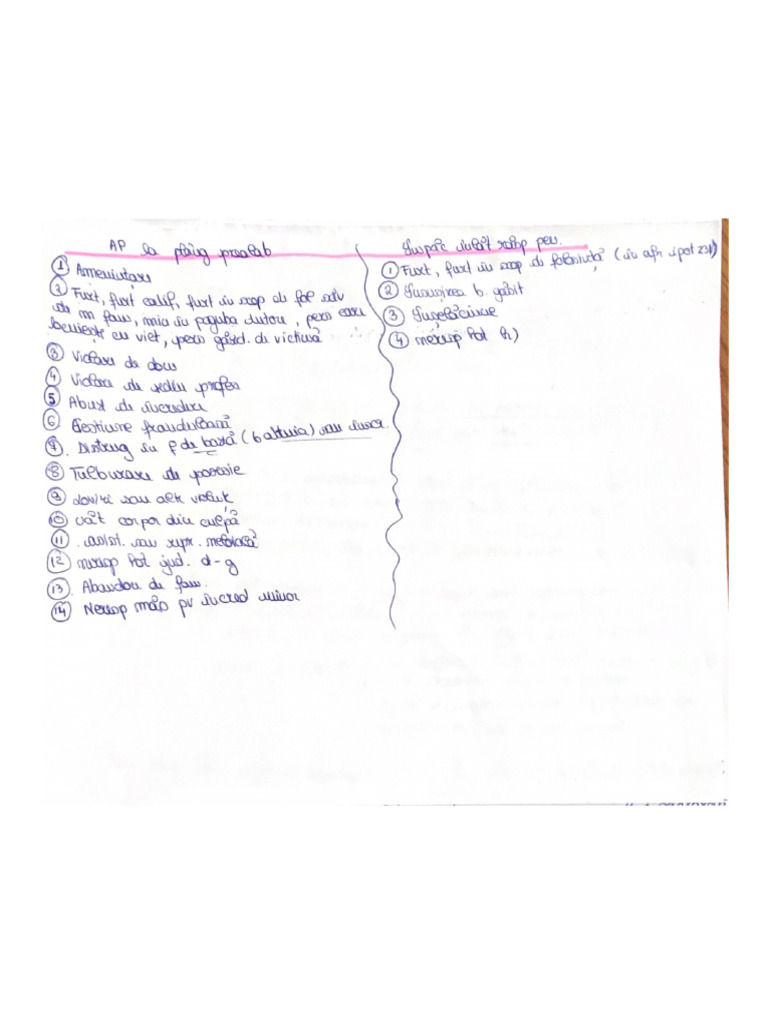 AP la plâng prealab
① Amenințare
② Furt, furt calif, furt în scop de fol săv
de m fam, min în paguba tutore, pers care
locuiește cu vict, pers găzd. de victimă
③ Violare de dom
④ Violare de sediu profes
⑤ Abuz de încredere
⑥ Gestiune frauduloasă
⑦. Distrug în f de bază (b altuia) sau încer.
⑧ Tulburare de posesie
⑨ Lovire sau alte violenț
⑩ Văt corpor din culpă
⑪. asist. sau repr. neloială
⑫ neresp hot jud. d-g
⑬. Abandon de fam.
⑭ Neresp măs pv încred minor
Împăc înlăt răsp pen.
① Furt, furt în scop de folosință (în afr ipot 231)
② Însușirea b. găsit
③ Înșelăciune
④ neresp hot h)